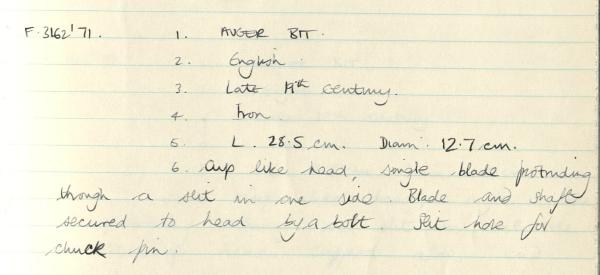 F.3162'71. 1. AUGER BIT.
2. English.
3. Late 19th Century.
4. Iron.
5. L. 28.5 cm. Diam. 12.7 cm.
6. Cup like head, single blade protruding
through a slit in one side. Blade and shaft
secured to head by a bolt. Slit hole for
chuck pin.